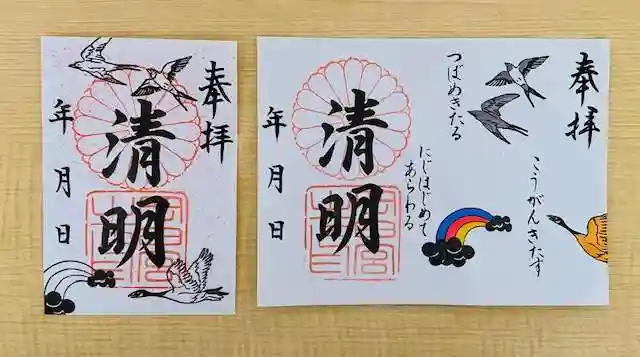 奉拝
清明
年月日
奉拝
こうがんきたす
つばめきたる
にじはじめて
あらわる
清明
年月日